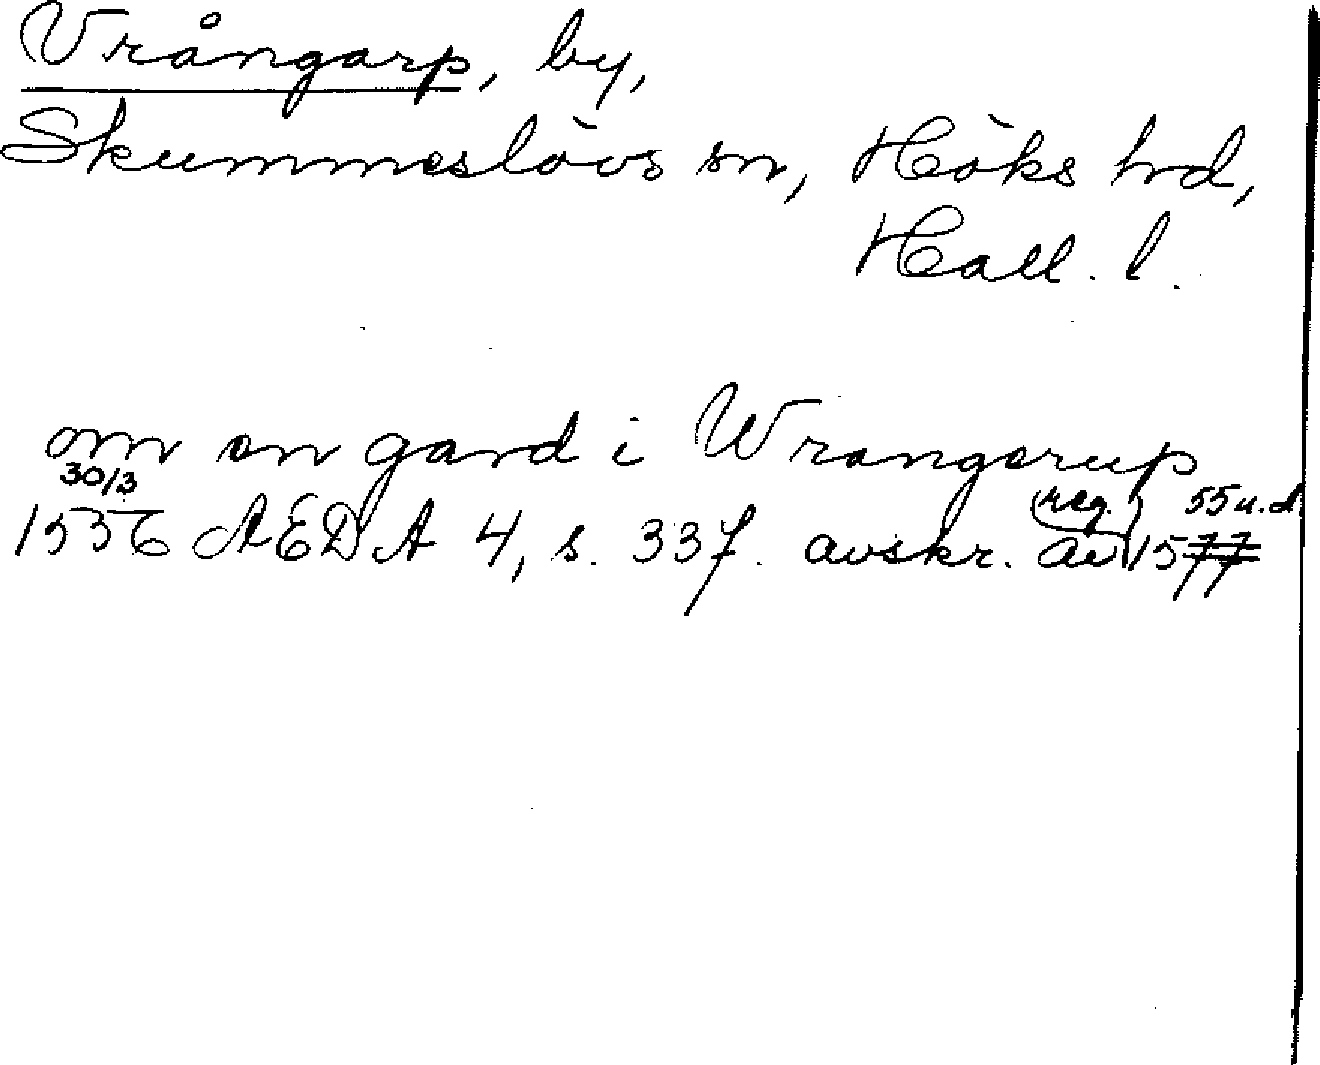 Vrångarp, by,
Skummeslövs sn, Höks hrd,
Hall. l.
om en gard i Wrangerup
30/3
1536 AEDA 4, s. 337. avskr. (reg.) av 1577 55 u.d